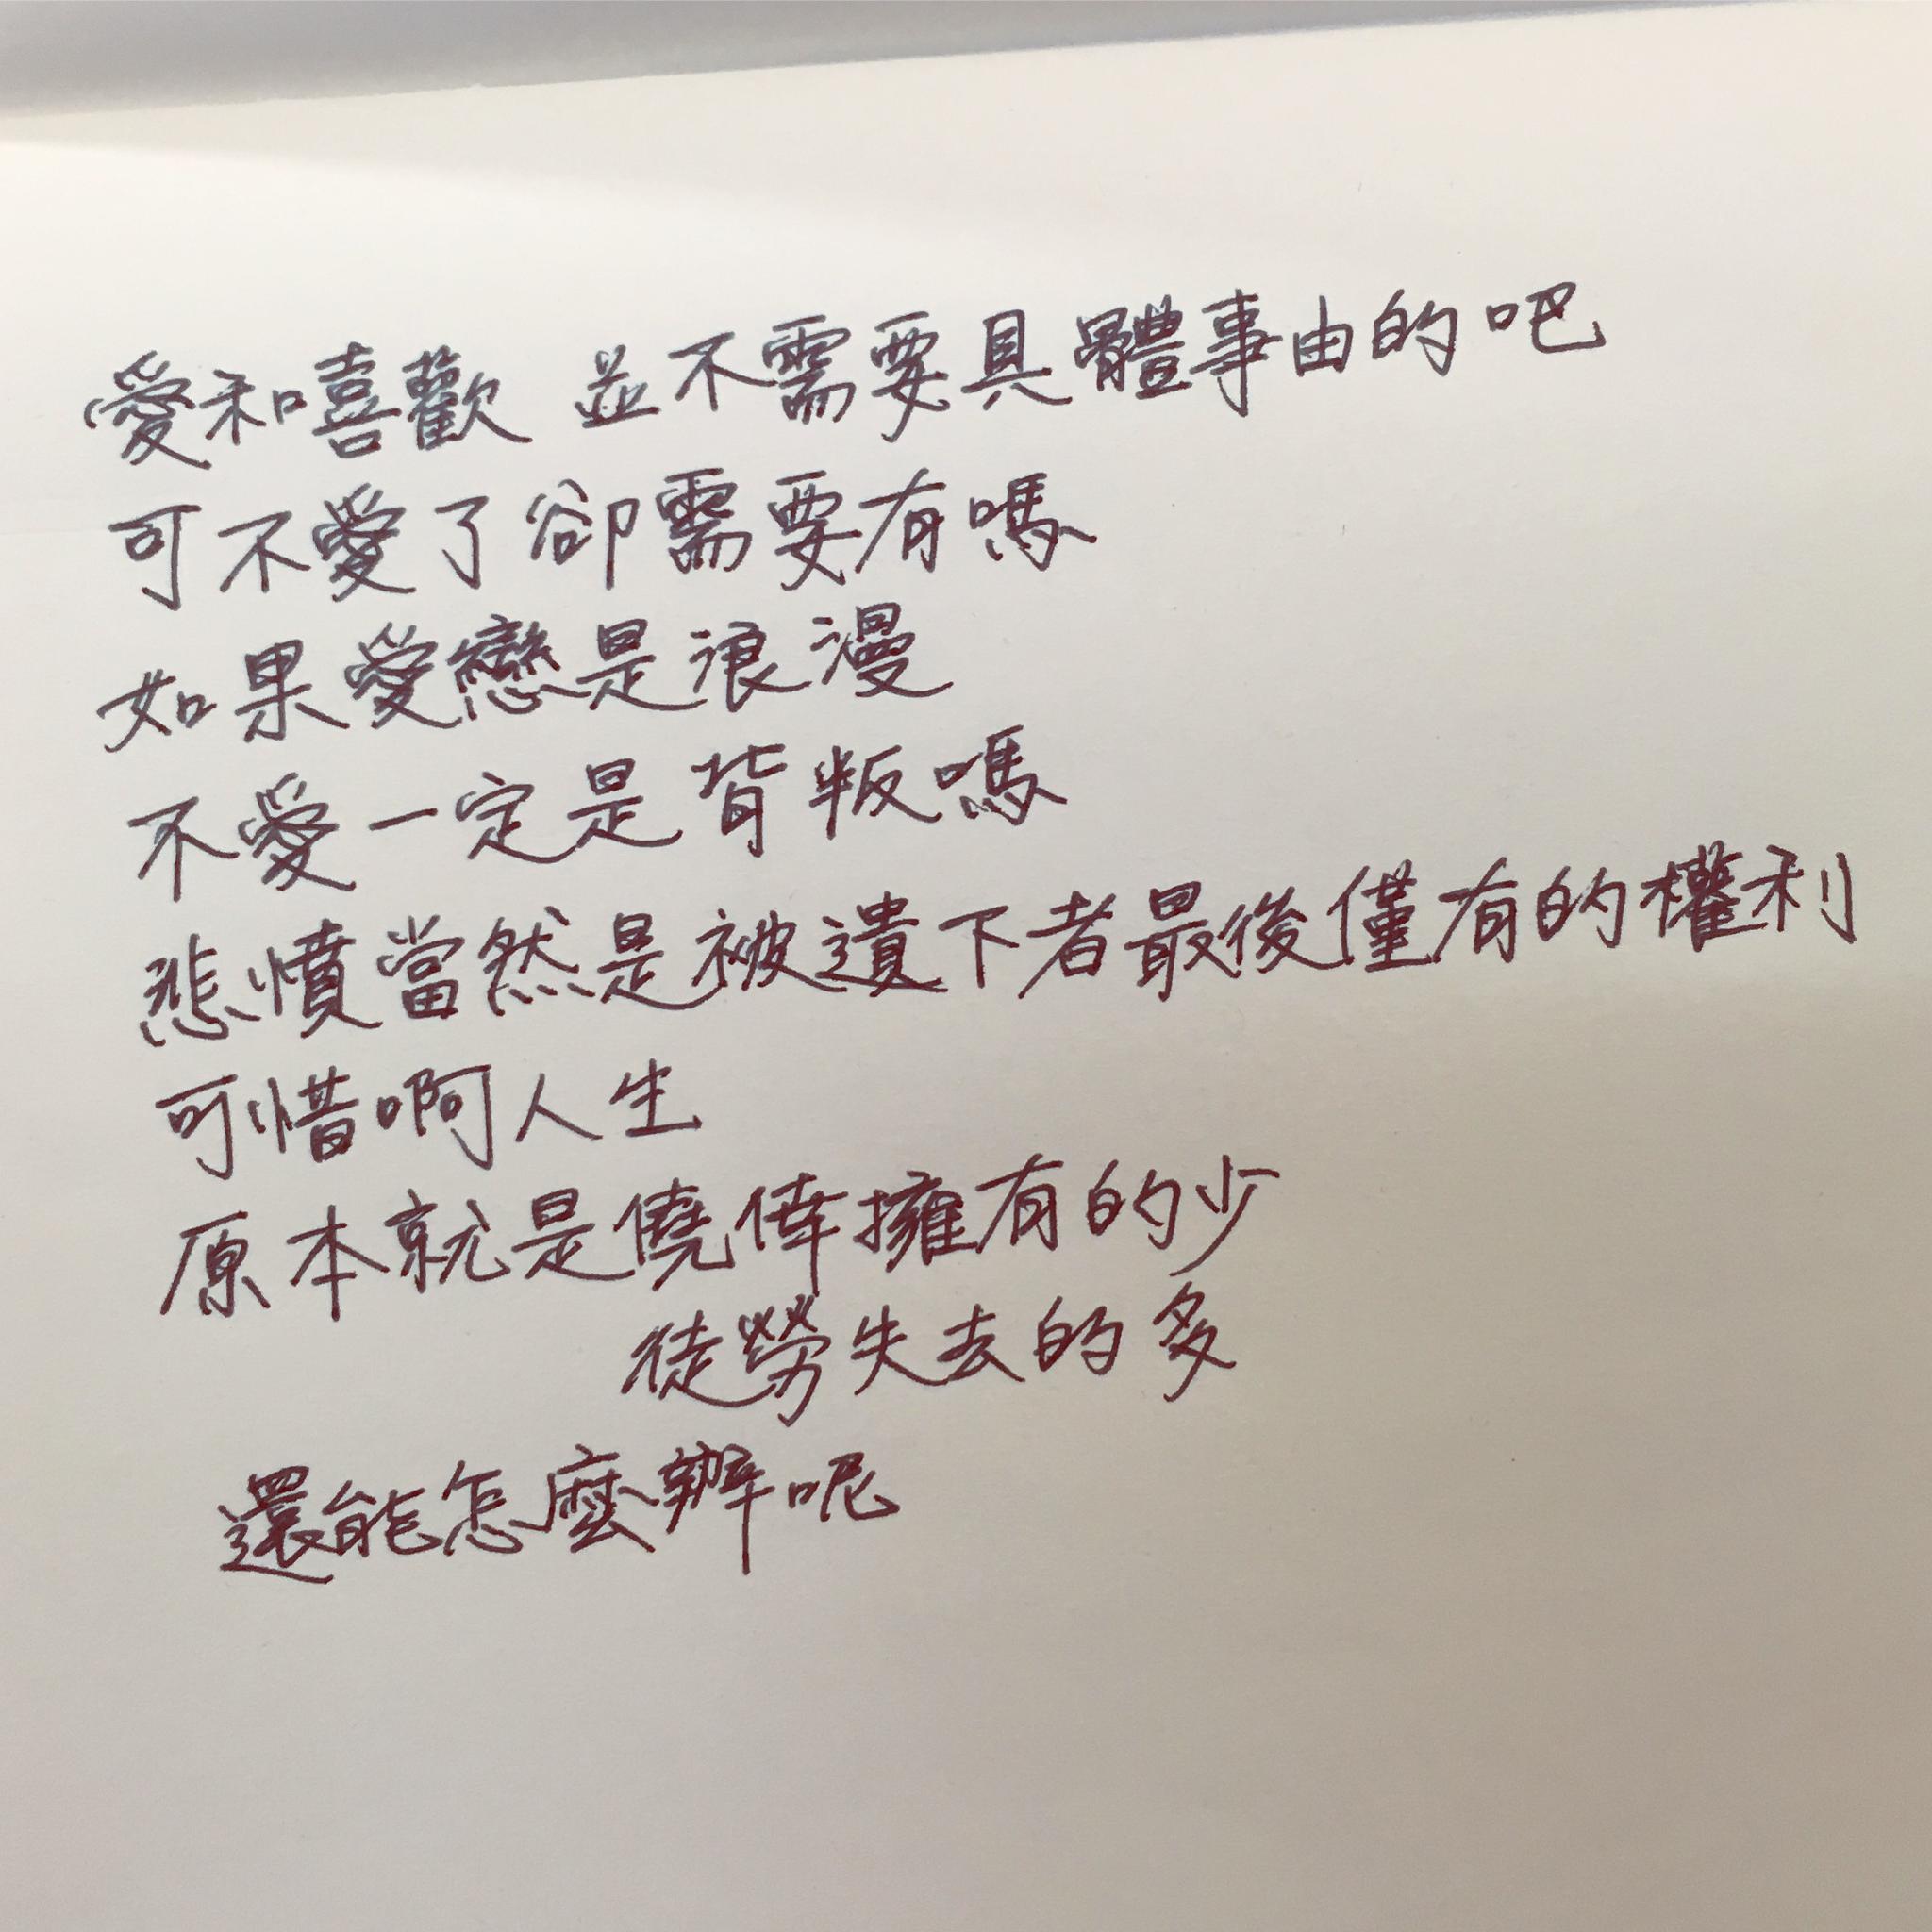 愛和嘻歡 並不需要具體事由的吧
可不愛了卻需要有嗎
如果愛戀是浪漫
不愛一定是背叛嗎
悲憤當然是被遺下者最後僅有的權利
可惜啊人生
原本就是僥倖擁有的少
徒勞失去的多
還能怎麼辦呢